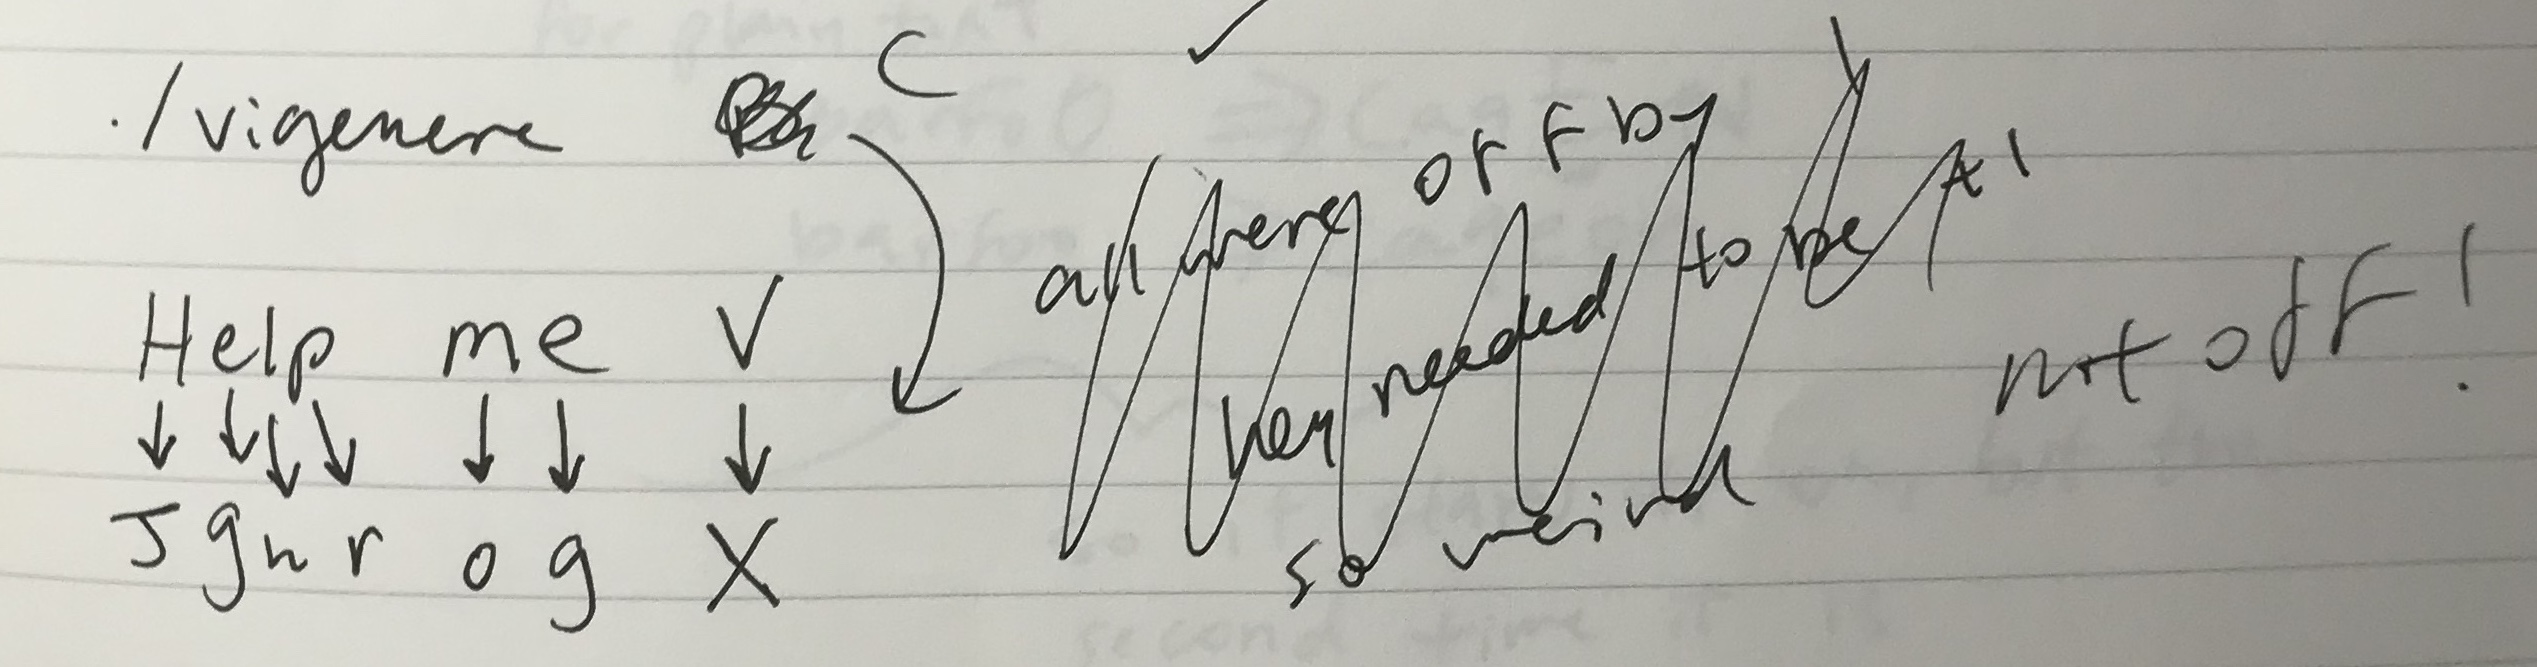 ./vigenere C
Help me V
Jgnr og X
all were off by 1
key needed to be +1
so weird
not off!